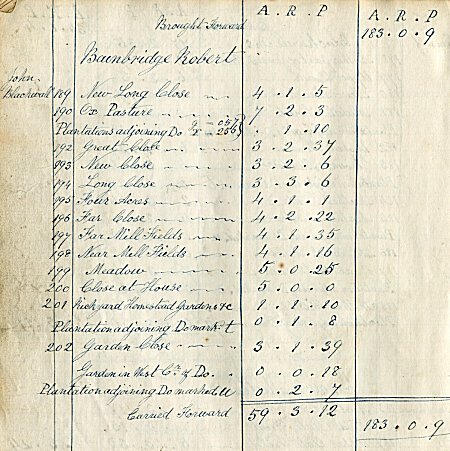 A . R . P A . R . P
Brought Forward 183 . 0 . 9
Bainbridge Robert
John Blackwall 189 New Long Close 4 . 1 . 5
190 Ox Pasture 7 . 2 . 3
Plantations adjoining Do . 1 . 10
192 Great Close 3 . 2 . 37
193 New Close 3 . 2 . 6
194 Long Close 3 . 3 . 6
195 Four Acres 4 . 1 . 1
196 Far Close 4 . 2 . 22
197 Far Mill Fields 4 . 1 . 35
198 Near Mill Fields 4 . 1 . 16
199 Meadow 5 . 0 . 25
200 Close at House 5 . 0 . 0
201 Rickyard Homestead Gardens &c 1 . 1 . 10
Plantation adjoining Do mark'd t 0 . 1 . 8
202 Garden Close 3 . 1 . 39
Garden in West Cr. of Do. 0 . 0 . 18
Plantation adjoining Do marked U 0 . 2 . 7
Carried Forward 59 . 3 . 12 183 . 0 . 9